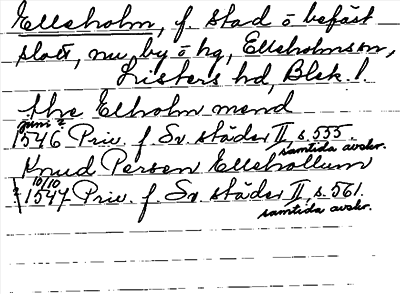 Elleholm, f. stad o befäst
slott, nu by o hg, Elleholmsn,
Listers hd, Blek. l.
the Elholm mend
juni ?
1546 Priv. f. Sv. städer II, s. 555.
samtida avskr.
Knud Persen Ellehollum
? 10/10
1547 Priv. f. Sv. städer II, s. 561.
samtida avskr.